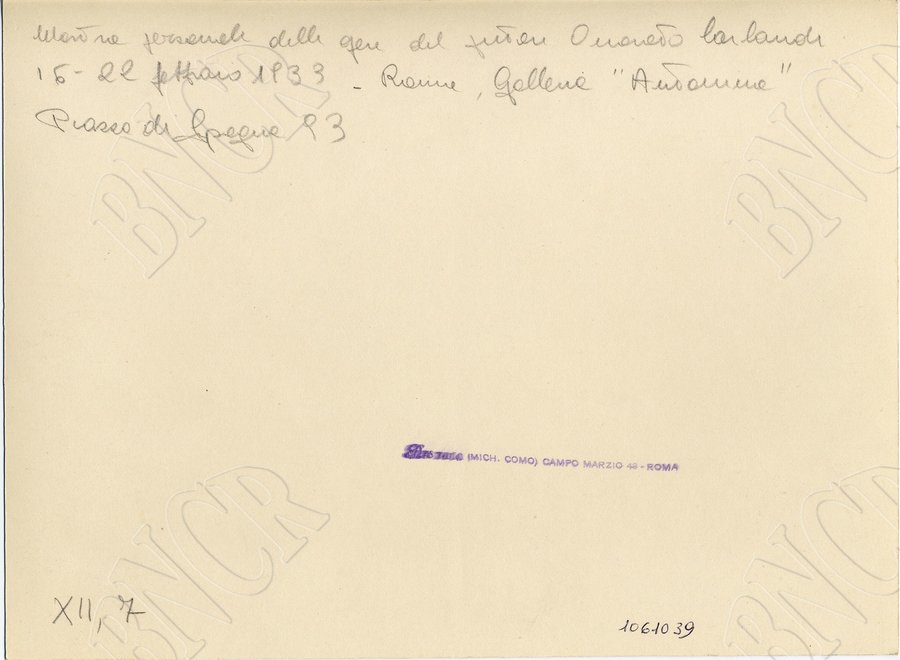 Mostra personale delle opere del pittore Onorato Carlandi
15-22 febbraio 1933 - Roma, Galleria "Antonina"
Piazza di Spagna 93
(MICH. COMO) CAMPO MARZIO 48 - ROMA
XII, 7
1061039
BNCR
BNCR
BNCR
BNCR